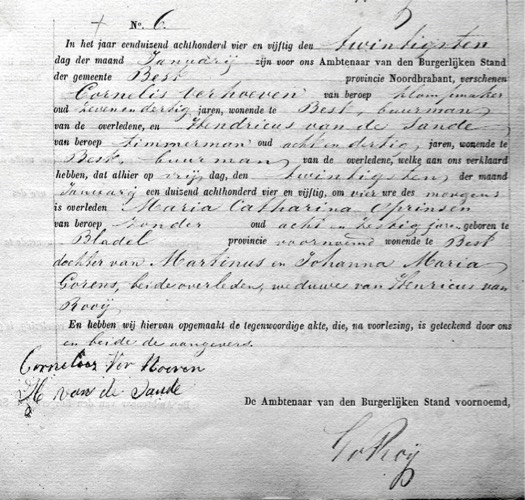 No. 6.
In het jaar eenduizend achthonderd vier en vijftig den twintigsten
dag der maand Januarij zijn voor ons Ambtenaar van den Burgerlijken Stand
der gemeente Best provincie Noordbrabant, verschenen
Cornelis Verhoeven van beroep klompmaker
oud zevenendertig jaren, wonende te Best, buurman
van de overledene, en Hendricus van de Sande
van beroep timmerman oud acht en dertig jaren, wonende te
Best, buurman van de overledene, welke aan ons verklaard
hebben, dat alhier op vrij dag, den twintigsten der maand
Januarij een duizend achthonderd vier en vijftig, om vier ure des morgens
is overleden Maria Catharina Sprinsen
van beroep zonder oud acht en zestig jaren geboren te
Bladel provincie voornoemd wonende te Best
dochter van Martinus en Johanna Maria
Gorens, beide overleden, weduwe van Henricus van
Rooij
En hebben wij hiervan opgemaakt de tegenwoordige akte, die, na voorlezing, is geteekend door ons
en beide de aangevers.
Cornelees Ver Hoeven
H van de Sande
De Ambtenaar van den Burgerlijken Stand voornoemd,